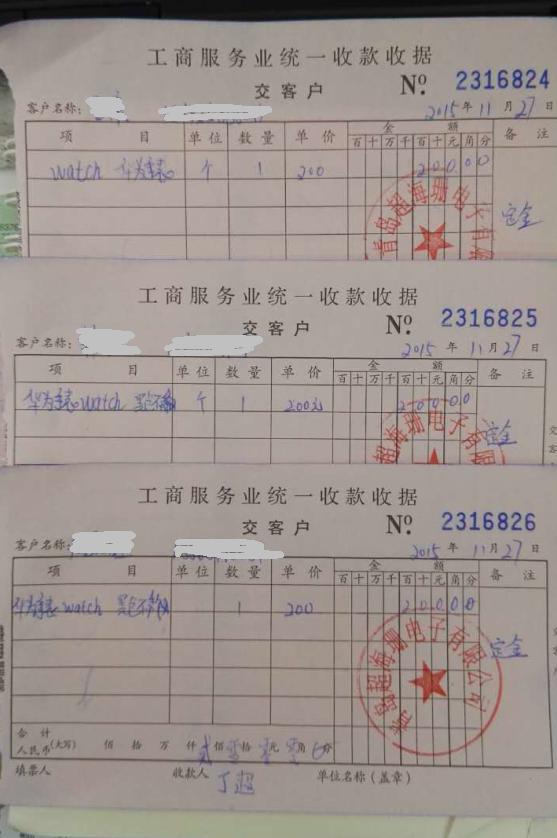 工商服务业统一收款收据
交客户 No. 2316824
客户名称: 2015年11月27日
项目 单位 数量 单价 金额 备注
百十万千百十元角分
watch 华为手表 个 1 200 20000 定金
青岛超海珊电子有限
工商服务业统一收款收据
交客户 No. 2316825
客户名称: 2015年11月27日
项目 单位 数量 单价 金额 备注
百十万千百十元角分
华为手表watch 黑色 个 1 200元 20000 定金
超海珊电子有限公
工商服务业统一收款收据
交客户 No. 2316826
客户名称: 2015年11月27日
项目 单位 数量 单价 金额 备注
百十万千百十元角分
华为手表watch 黑色 1 200 20000 定金
青岛超海珊电子有限公司
合计
人民币(大写) 佰拾万仟贰佰零拾零元零角分
填票人 收款人 丁超 单位名称(盖章)